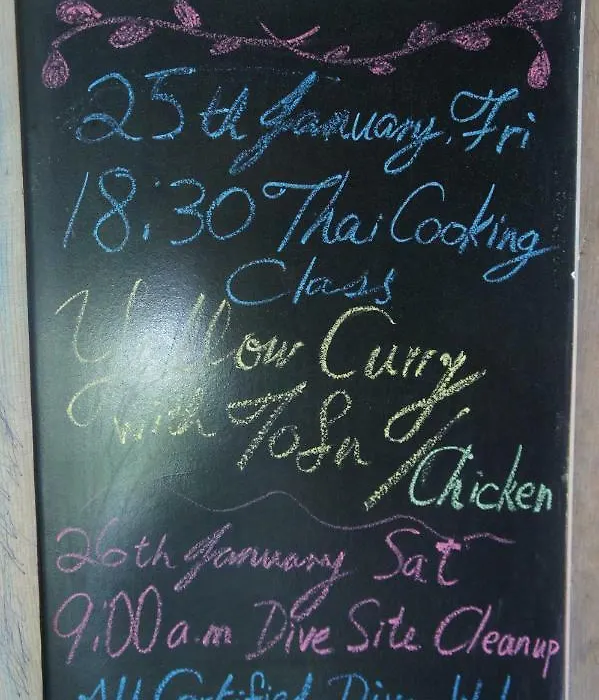 25th January, Fri
18:30 Thai Cooking
Class
Yellow Curry
with Tofu /
Chicken
26th January Sat
9:00 a.m Dive Site Cleanup
All Certified